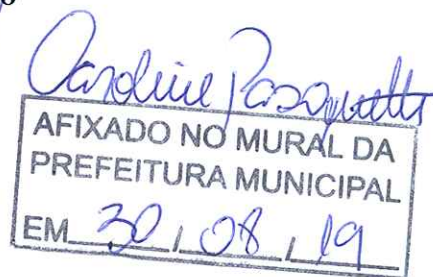 Caroline Pasqualetti
AFIXADO NO MURAL DA
PREFEITURA MUNICIPAL
EM 30 / 08 / 19